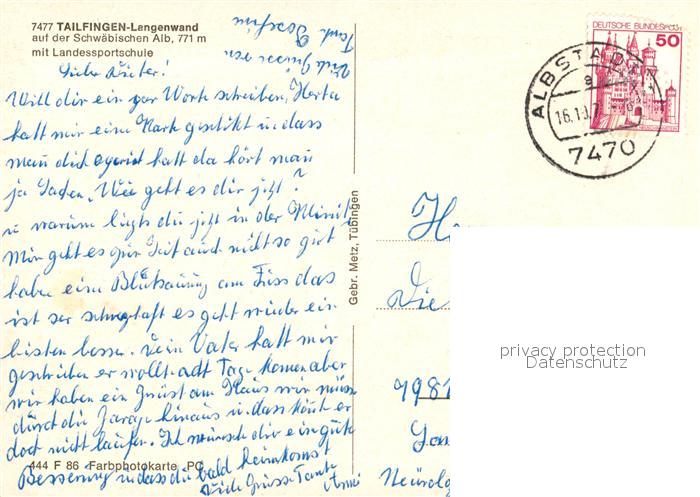 7477 TAILFINGEN-Langenwand
auf der Schwäbischen Alb, 771 m
mit Landessportschule
Lieber Dieter!
Will dir ein par Worte schreiben, Herta
hatt mir eine Karte geschikt u. dass
man dich hatt da hört man
ja Saden, Wie geht es dir jzt?
u. warum ligst du jzt in der Klinik
Mir geht es zur Zeit auch nicht so gut
haben eine am Fuss das
ist ser es geht wieder ein
bisten besser. Dein Vater hatt mir
geschriben er wollt adt Tage komen aber
wir haben ein Grüst am Haus wir müssen
durch die Garage hinaus u. dass könte er
doch nicht laufen. Ich wünsche dir ein gute
Besserung u. dass du bald heimkomst
Viele Grüsse Tante
Viele Grüsse von
Tante Josefin
444 F 86 Farbphotokarte PC
Gebr. Metz, Tübingen
DEUTSCHE BUNDESPOST
50
ALBSTADT 1
a
7470
H
Die
7981
Neurolog
privacy protection
Datenschutz